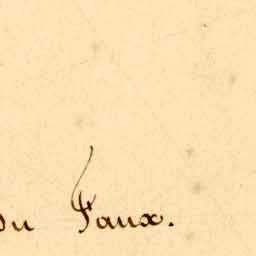 du Faux.